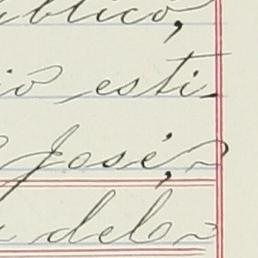 úblico,
io esti-
José,
del